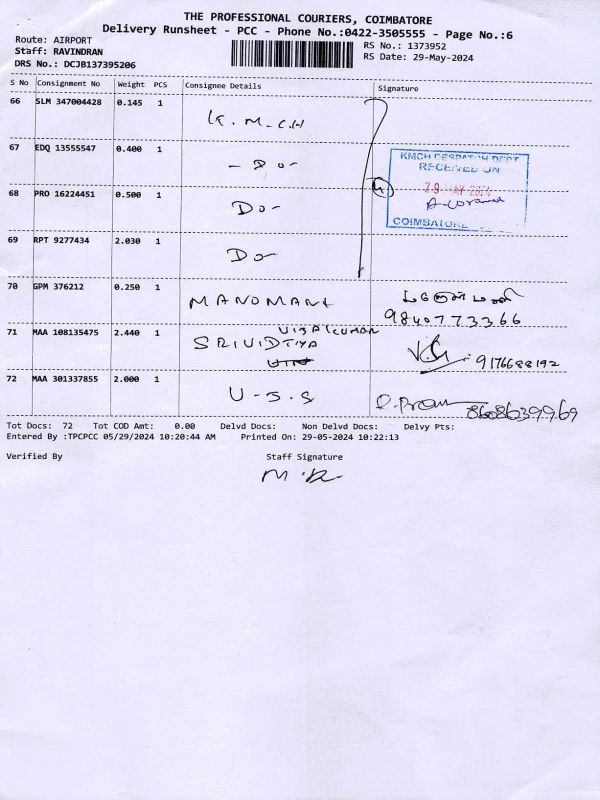 THE PROFESSIONAL COURIERS, COIMBATORE
Delivery Runsheet - PCC - Phone No.:0422-3505555 - Page No.:6
Route: AIRPORT
RS No.: 1373952
Staff: RAVINDRAN
RS Date: 29-May-2024
DRS No.: DCJB137395206
S No Consignment No Weight PCS Consignee Details Signature
66 SLM 347004428 0.145 1 K.M.CH
67 EDQ 13555547 0.400 1 - Do -
KMCH DESPATCH DEPT
RECEIVED ON
68 PRO 16224451 0.500 1 Do -
COIMBATORE
69 RPT 9277434 2.030 1 Do -
70 GPM 376212 0.250 1 MANOMANI
9840773366
71 MAA 108135475 2.440 1 SRIVIDTYA VIJAIKUMAR
9176688192
72 MAA 301337855 2.000 1 U-S-S
8608639969
Tot Docs: 72 Tot COD Amt: 0.00 Delvd Docs: Non Delvd Docs: Delvy Pts:
Entered By :TPCPCC 05/29/2024 10:20:44 AM Printed On: 29-05-2024 10:22:13
Verified By Staff Signature